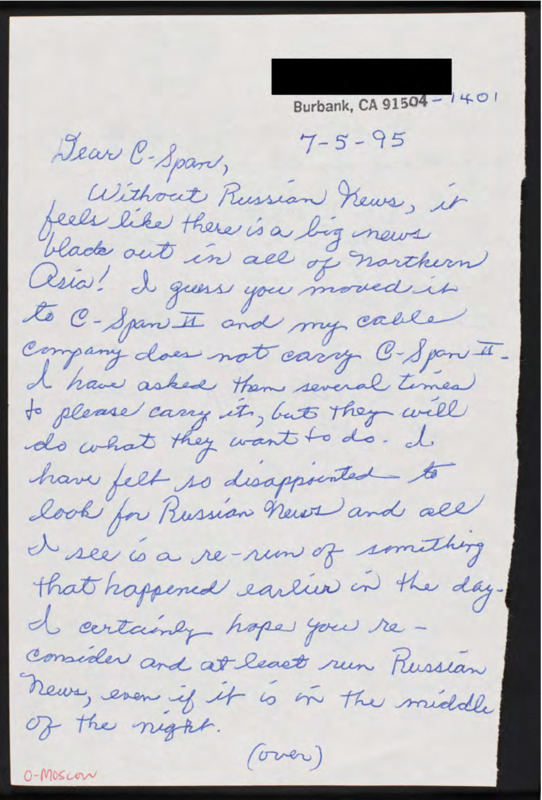 Burbank, CA 91504-1401
7-5-95
Dear C-Span,
Without Russian News, it
feels like there is a big news
black out in all of Northern
Asia! I guess you moved it
to C-Span II and my cable
company does not carry C-Span II.
I have asked them several times
to please carry it, but they will
do what they want to do. I
have felt so disappointed to
look for Russian News and all
I see is a re-run of something
that happened earlier in the day.
I certainly hope you re-
consider and at least run Russian
News, even if it is in the middle
of the night.
(over)
O-Moscow